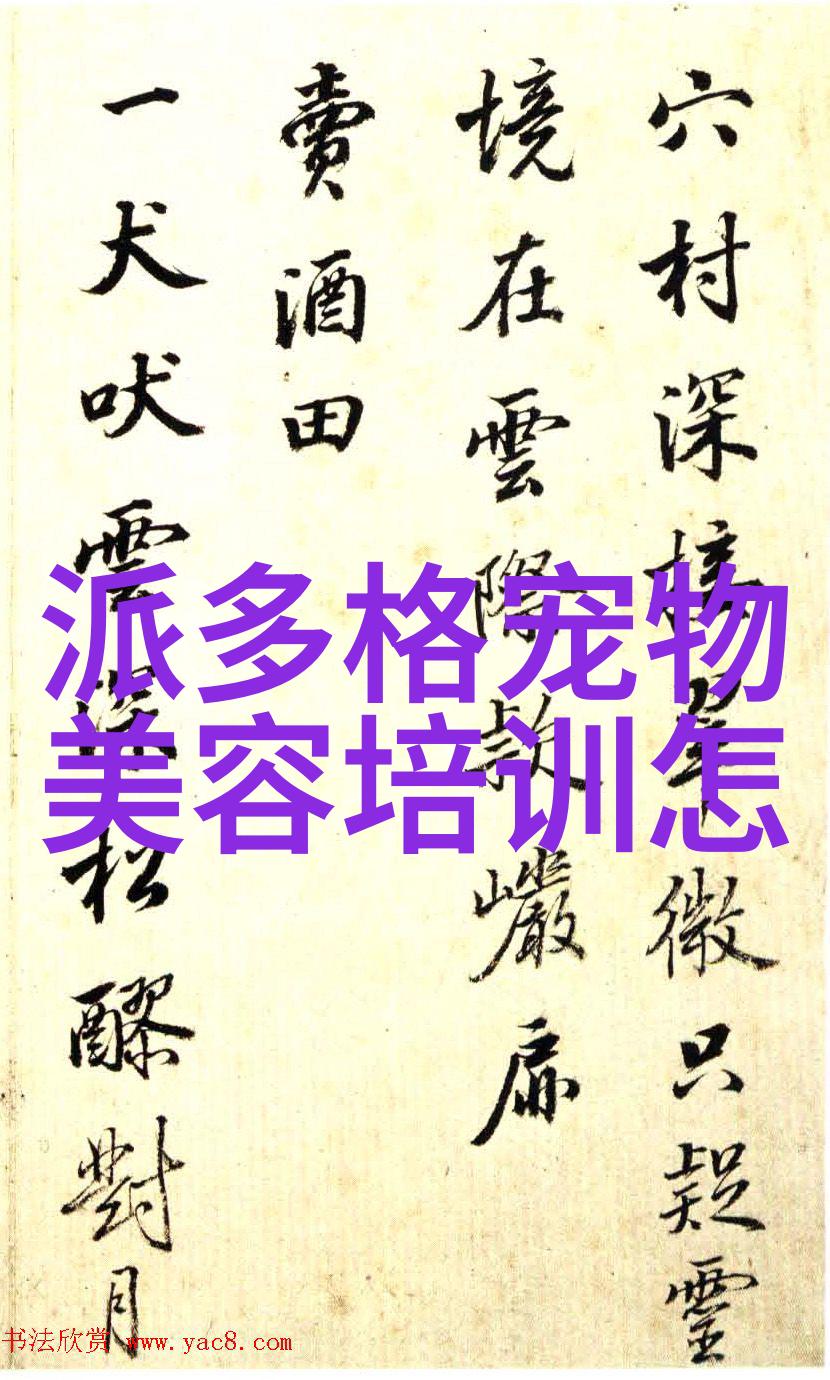 穴村深接微只疑靈
境在雲際款巖扉
賣酒田
一犬吠雲深松醪對月
派多格宠物
美容培训怎
书法欣赏 www.yac8.com